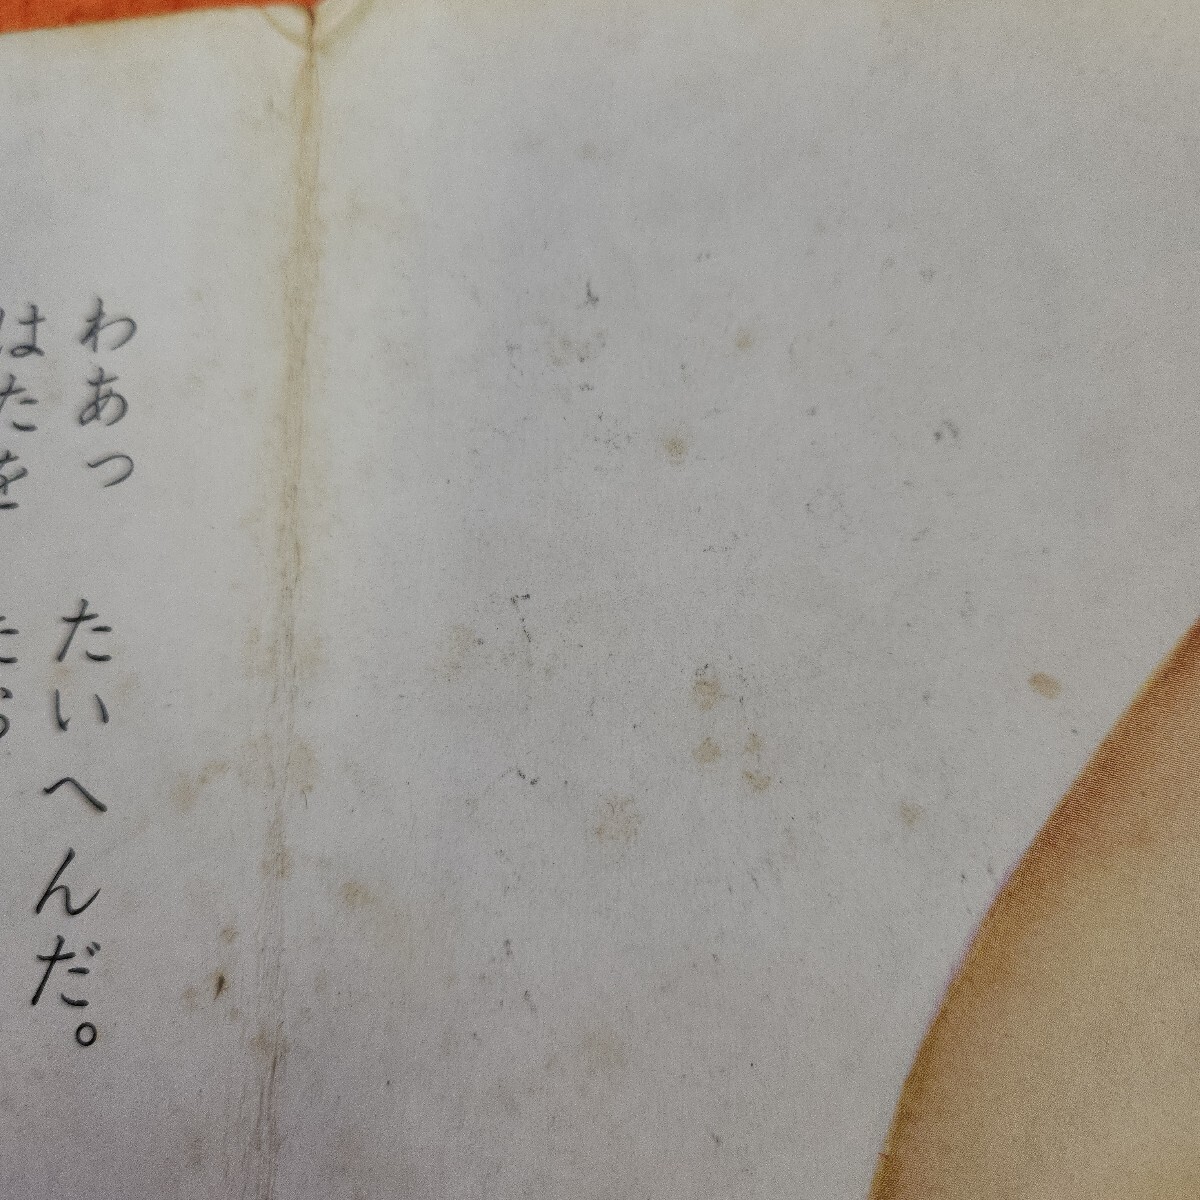 わあっ たいへんだ。
はたを